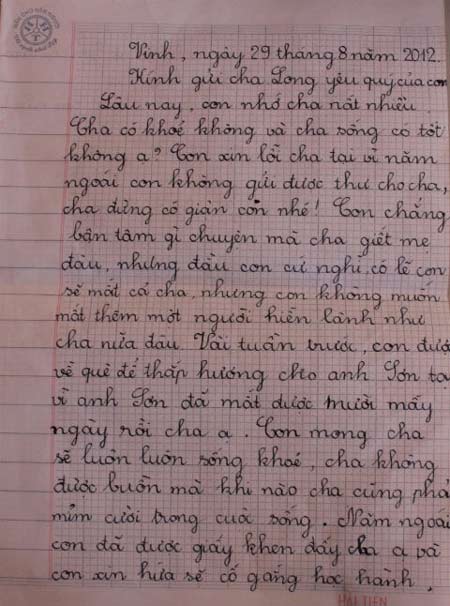 Vinh, ngày 29 tháng 8 năm 2012.
Kính gửi cha Long yêu quý của con
Lâu nay, con nhớ cha nất nhiều
Cha có khoẻ không và cha sống có tốt
không ạ? Con xin lỗi cha tại vì năm
ngoái con không gửi được thư cho cha,
cha đừng có giận con nhé! Con chẳng
bận tâm gì chuyện mà cha giết mẹ
đâu, nhưng đầu con cứ nghĩ, có lẽ con
sẽ mất cả cha, nhưng con không muốn
mất thêm một người hiền lành như
cha nữa đâu. Vài tuần trước, con được
về quê để thắp hương cho anh Sơn tạ
vì anh Sơn đã mất được mười mấy
ngày rồi cha ạ. Con mong cha
sẽ luôn luôn sống khoẻ, cha không
được buồn mà khi nào cha cũng phả
mỉm cười trong cuộc sống. Năm ngoái
con đã được giấy khen đấy cha ạ và
con xin hứa sẽ cố gắng học hành.
HẢI TIẾN